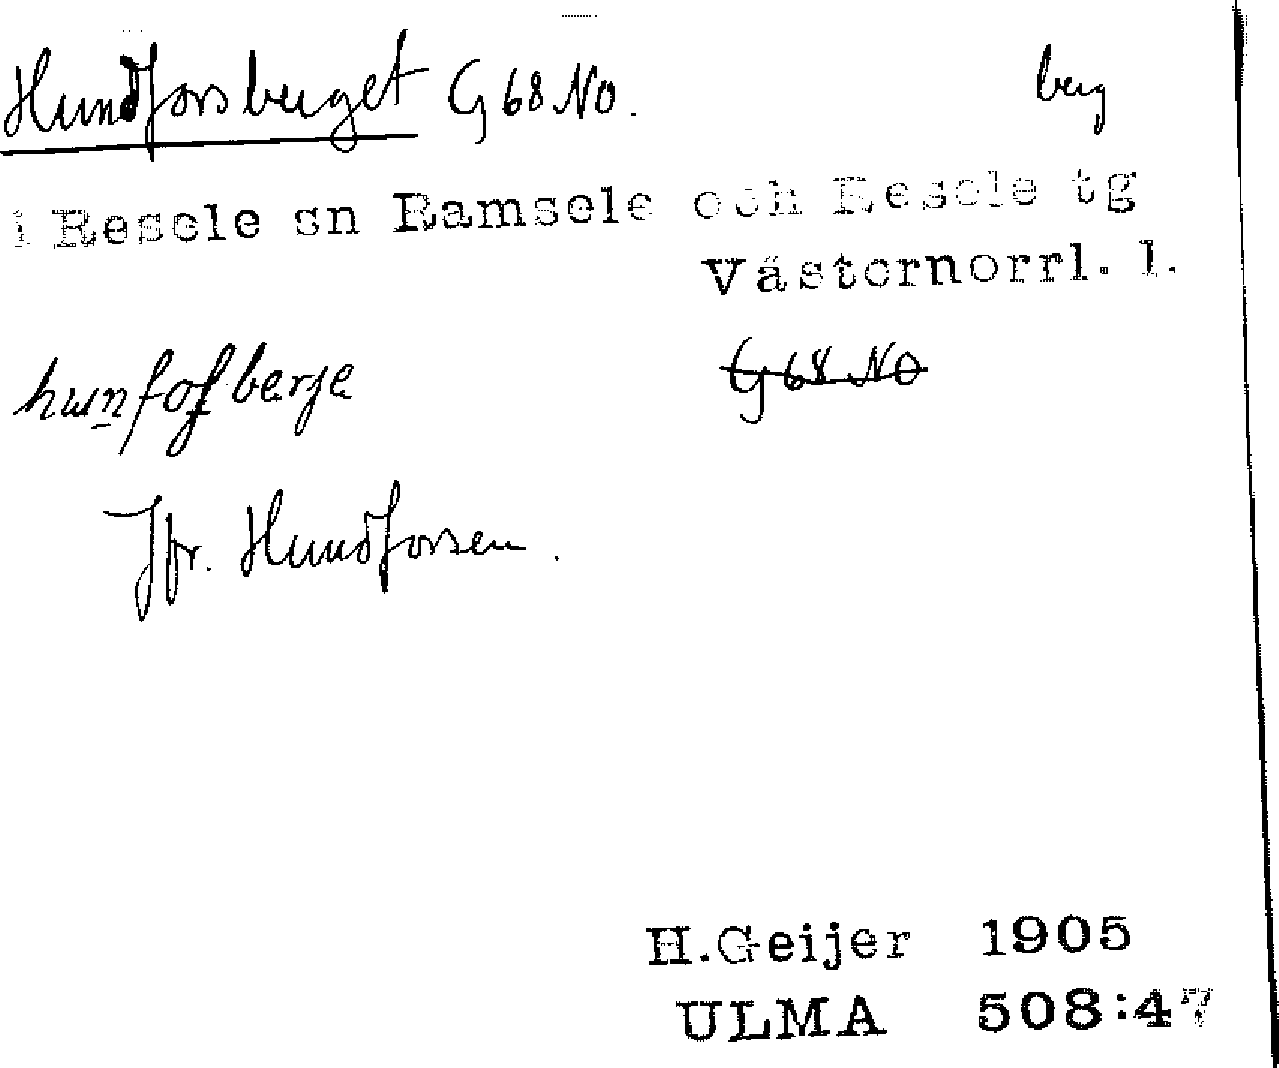 Hundforsberget G 68 NO. berg
i Resele sn Ramsele och Resele tg
Västernorrl. l.
G 68 NO
Jfr. Hundforsen.
H.Geijer 1905
ULMA 508:47